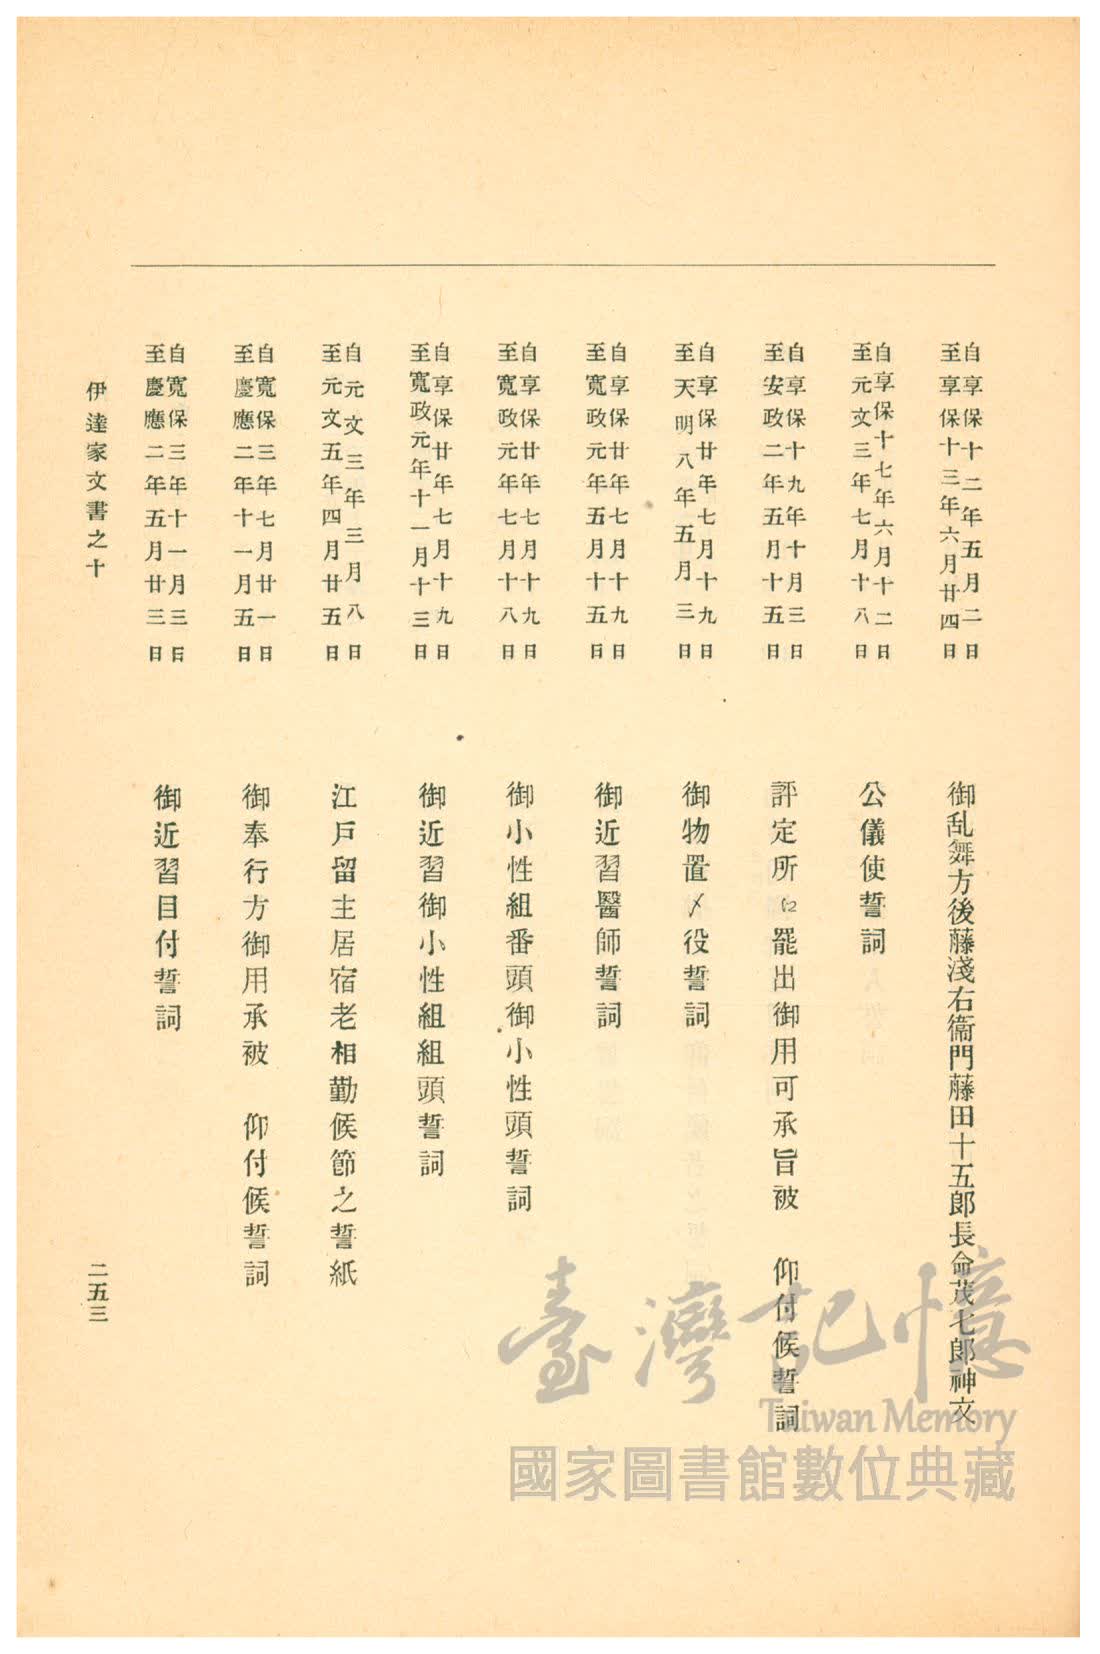 自享保十二年五月二日
至享保十三年六月廿四日
御乱舞方後藤淺右衞門藤田十五郎長命茂七郎神文
自享保十七年六月十二日
至元文三年七月十八日
公儀使誓詞
自享保十九年十月三日
至安政二年五月十五日
評定所江罷出御用可承旨被　仰付候誓詞
自享保廿年七月十九日
至天明八年五月三日
御物置〆役誓詞
自享保廿年七月十九日
至寬政元年五月十五日
御近習醫師誓詞
自享保廿年七月十九日
至寬政元年七月十八日
御小性組番頭御小性頭誓詞
自享保廿年七月十九日
至寬政元年十一月十三日
御近習御小性組組頭誓詞
自元文三年三月八日
至元文五年四月廿五日
江戶留主居宿老相勤候節之誓紙
自寬保三年七月廿一日
至慶應二年十一月五日
御奉行方御用承被　仰付候誓詞
自寬保三年十一月三日
至慶應二年五月廿三日
御近習目付誓詞
伊達家文書之十
二五三
臺灣記憶
Taiwan Memory
國家圖書館數位典藏